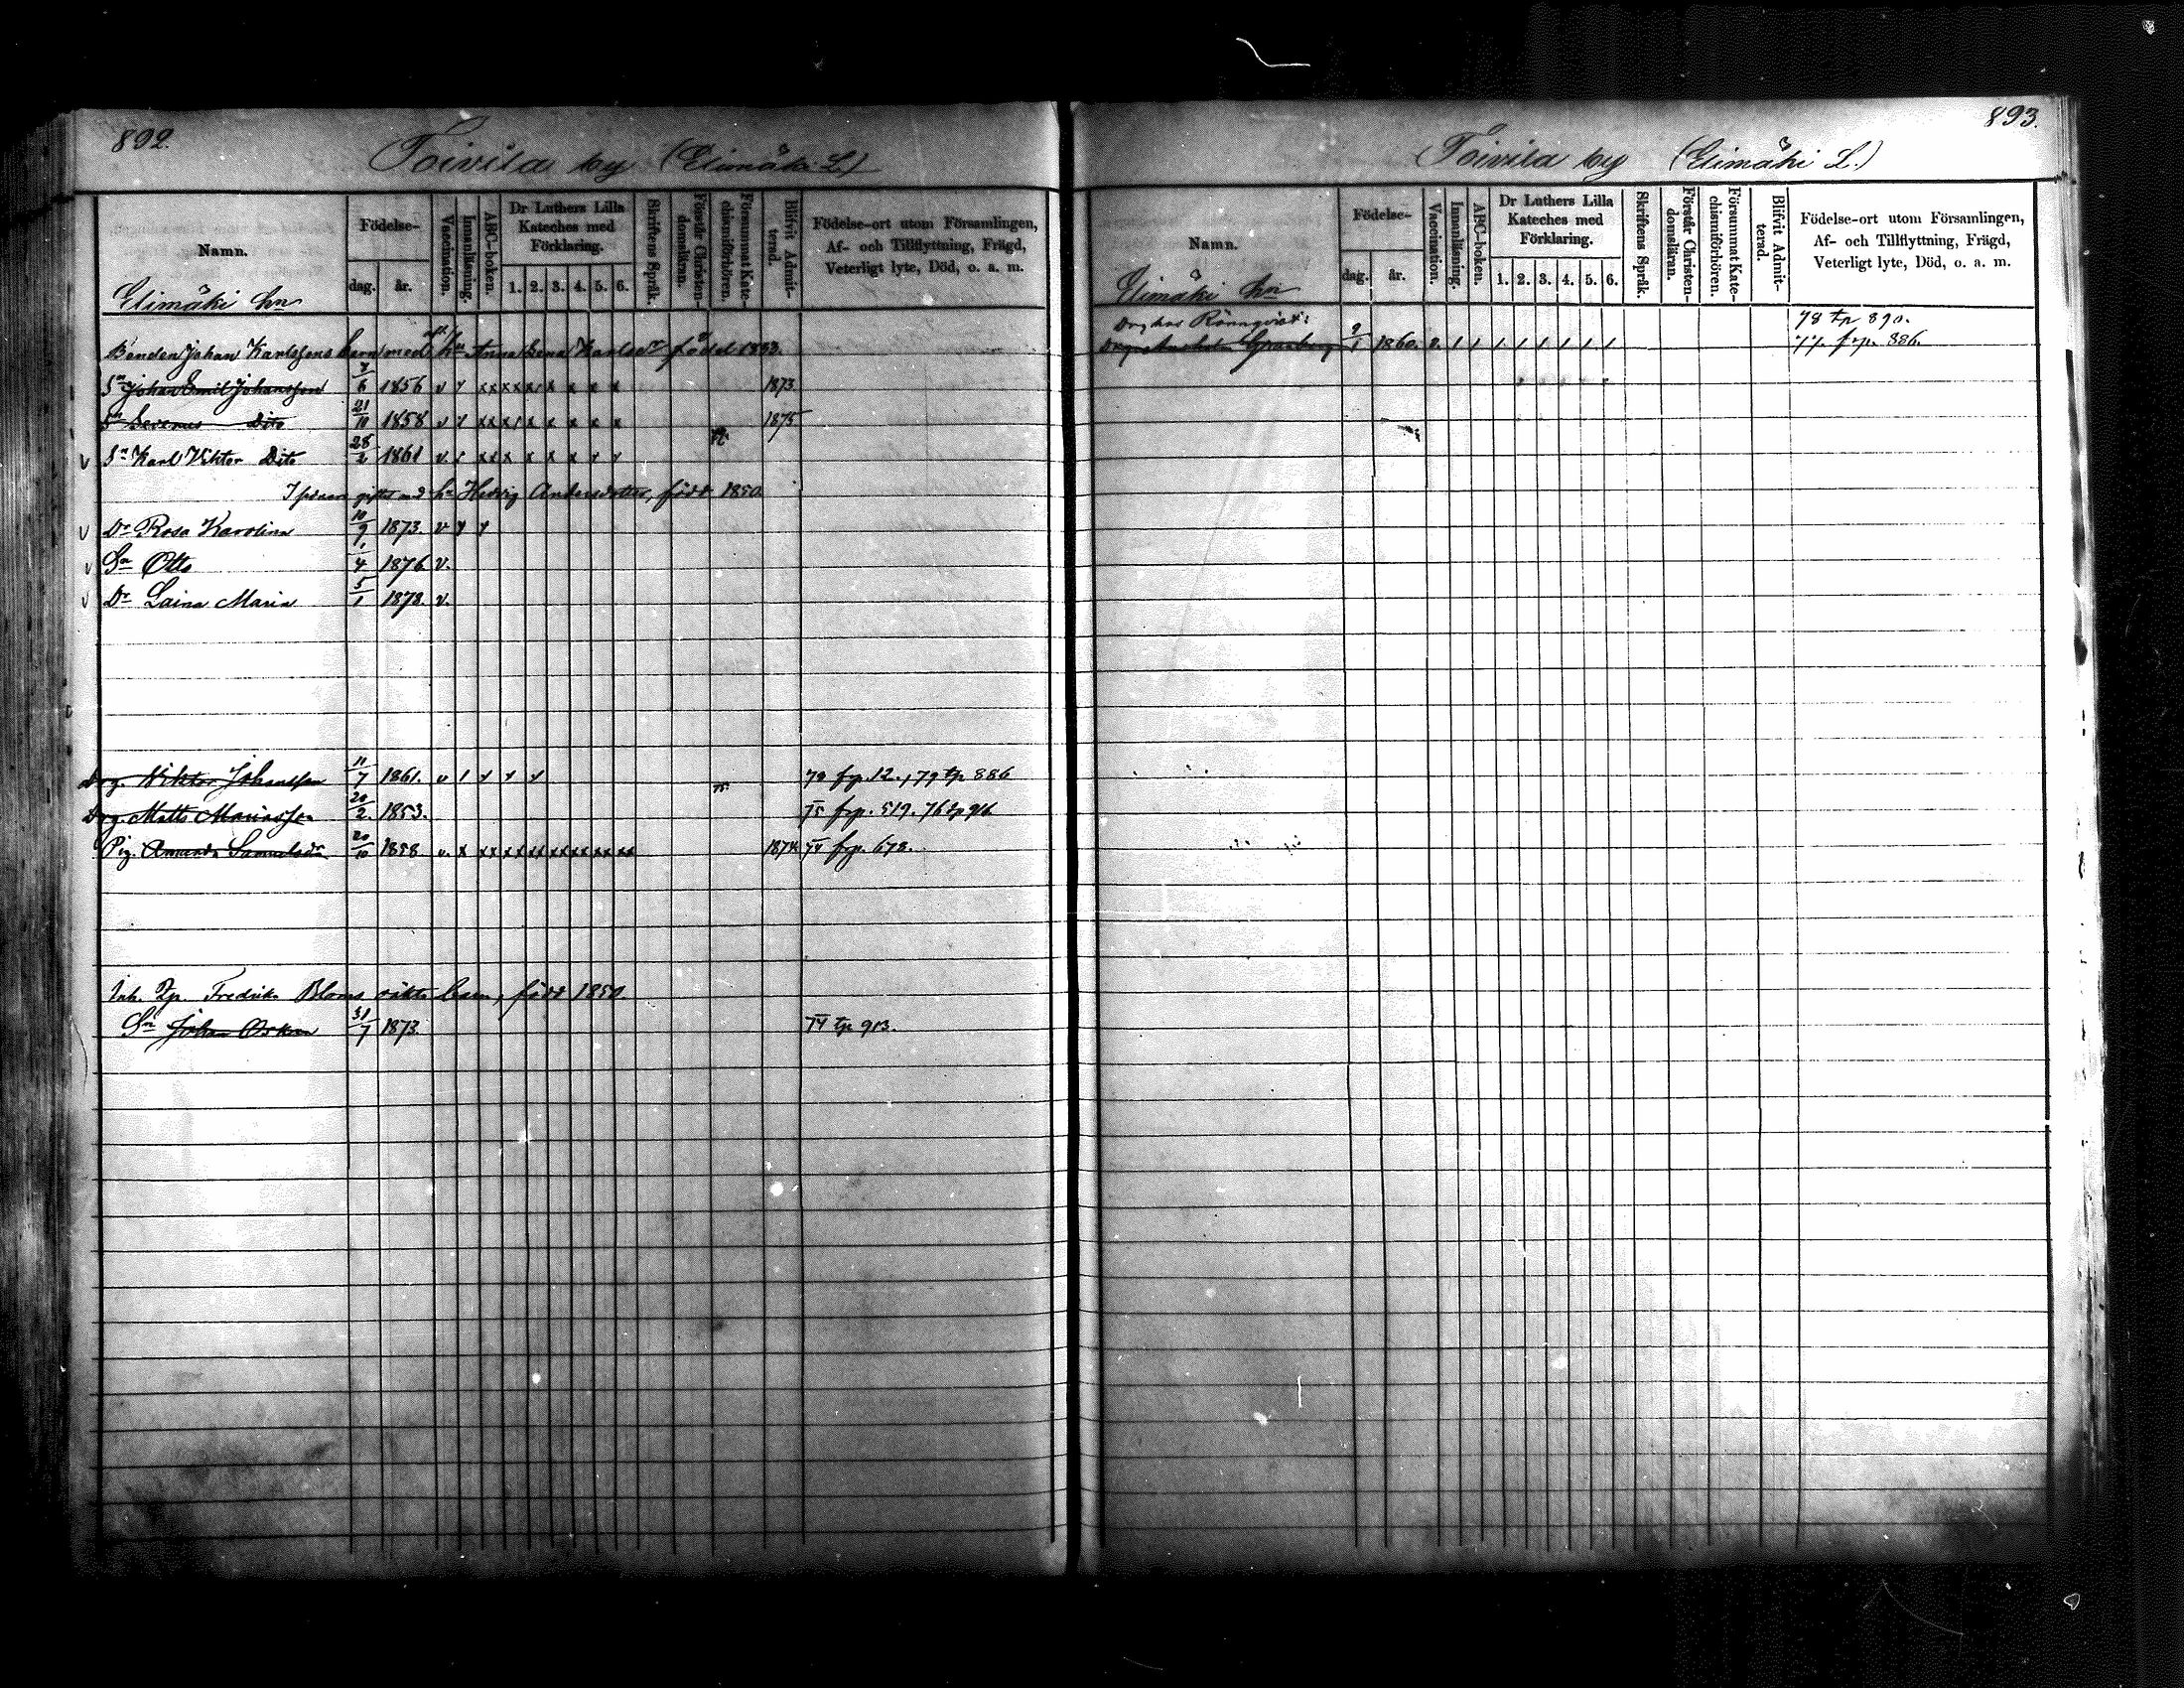 892.
Toivila by (Elimäki L.)
Namn.
Födelse-
dag.
år.
Vaccination.
Innanläsning.
ABC-boken.
Dr Luthers Lilla Kateches med Förklaring.
1. 2. 3. 4. 5. 6.
Skriftens Språk.
Förstår Christendomsläran.
Försummat Katechismiförhören.
Blifvit Admitterad.
Födelse-ort utom Församlingen,
Af- och Tillflyttning, Frägd,
Veterligt lyte, Död, o. a. m.
Elimäki hn
Bonden Johan Karlssons barn med hu Anna Lena Karlsdr född 1833.
Sn Johan Emil Johansson 7/6 1856 v y xx x x x x x x x 1873
Sn Severus Dito 21/10 1858 v y xx x x x x x x 1875
v Sn Karl Viktor Dito 28/2 1861 v. x x x x x x x x
gift m. d hu Hedvig Andersdotter, född 1850
v Dr Rosa Karolina 10/9 1873. v y y
v Sn Otto 1/4 1876 v.
v Dr Laina Maria 5/1 1878. v.
Drg. Viktor Johansson 11/7 1861. v 1 y y y 78 frp. 12., 79 tp 886
Drg. Matts Mariasson 20/2. 1853. 75 frp. 519. 76 tp 916
Pig. Amanda Samuelsdr 20/10 1858 v. x xx xx xx xx xx xx xx 1874 74 frp. 678.
Inh. Fredrika Bloms oäkta barn, född 1850
Sn Johan Oskar 31/7 1873. 74 tp 913.
893.
Toivila by (Elimäki L.)
Namn.
Födelse-
dag.
år.
Vaccination.
Innanläsning.
ABC-boken.
Dr Luthers Lilla Kateches med Förklaring.
1. 2. 3. 4. 5. 6.
Skriftens Språk.
Förstår Christendomsläran.
Försummat Katechismiförhören.
Blifvit Admitterad.
Födelse-ort utom Församlingen,
Af- och Tillflyttning, Frägd,
Veterligt lyte, Död, o. a. m.
Elimäki hn
Drg hos Rönnqvist: 78 tp 890.
Granberg 9/1 1860. v. 1 1 1 1 1 1 1 1 77. frp. 886.